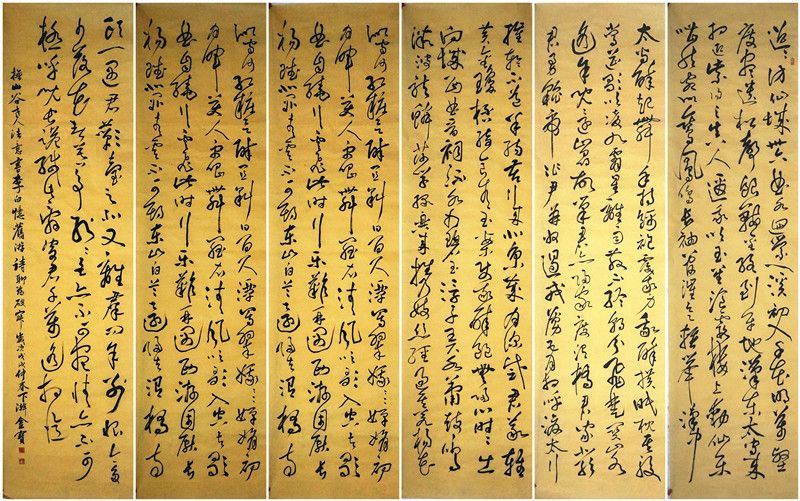 迢迢訪仙城卅六曲水回縈一溪初入千花明萬壑
度盡松聲銀鞍金絡到平地漢東太守來
相迎紫陽之真人邀我吹玉笙湌霞樓上動仙樂
嘈然宛似鸞鳳鳴長袖管催欲輕舉漢中
太守醉起舞手持錦袍覆我身我醉橫眠枕其股
當筵意氣凌九霄星離雨散不終朝分飛楚關山
水遙余既還山尋故巢君亦歸家度渭橋君家嚴
君勇貔虎作尹并州遏戎虜五月相呼渡太行
摧輪不道羊腸苦行來北京歲月深感君貴義輕
黃金瓊杯綺食青玉案使我醉飽無歸心時時出
向城西曲晉祠流水如碧玉浮舟弄水簫鼓鳴
微波龍鱗莎草綠興來攜妓恣經過其若楊花
似雪何紅粧欲醉宜斜日百尺清潭寫翠娥翠娥嬋娟初
月輝美人更唱舞羅衣清風吹歌入空去歌
曲自繞行雲飛此時行樂難再遇西游因獻長
楊賦北闕青雲不可期東山白首還歸去渭橋南
似雪何紅粧欲醉宜斜日百尺清潭寫翠娥翠娥嬋娟初
月輝美人更唱舞羅衣清風吹歌入空去歌
曲自繞行雲飛此時行樂難再遇西游因獻長
楊賦北闕青雲不可期東山白首還歸去渭橋南
頭一遇君酇臺之北又離群問余別恨今多
少落花春暮爭紛紛言亦不可盡情亦不可
極呼兒長跪緘此辭寄君千里遙相憶
擬山谷道人法意書李白憶舊游詩聊為破寂 歲次戊戌仲春下浣